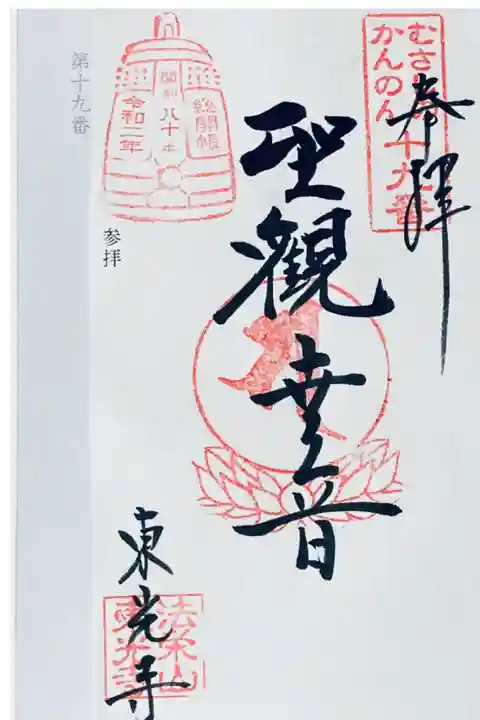 奉拝
むさしの
かんのん
十九番
聖観世音
総開帳
開創八十年
令和二年
第十九番
参拝
東光寺
法栄山
東光寺